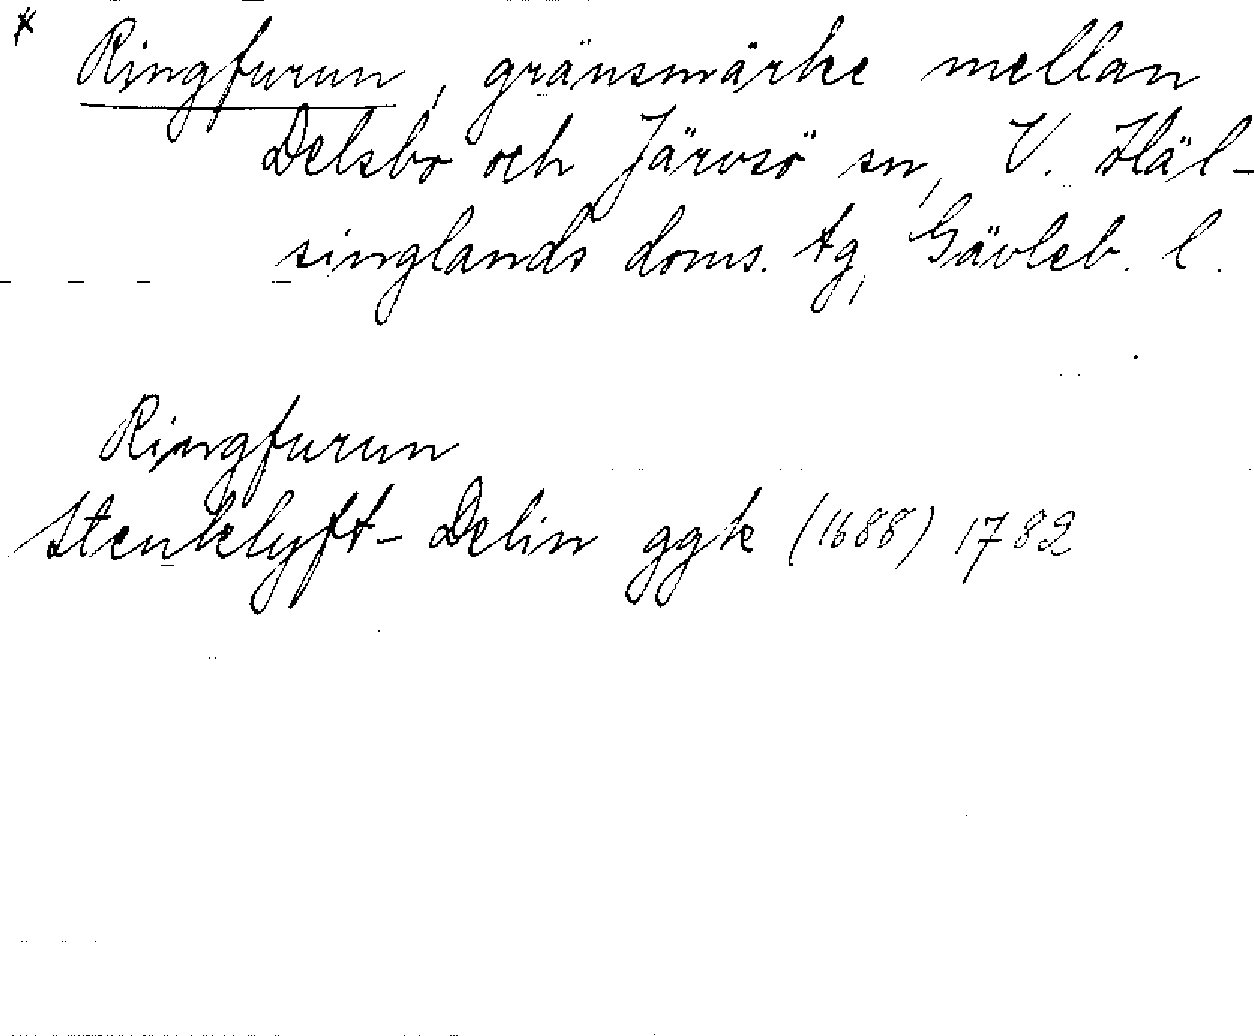 * Ringfurun, gränsmärke mellan
Delsbo och Järvsö sn, V. Häl-
singlands doms. tg, Gävleb. l.
Ringfurun
Stenklyft- Delin ggk (1688) 1782